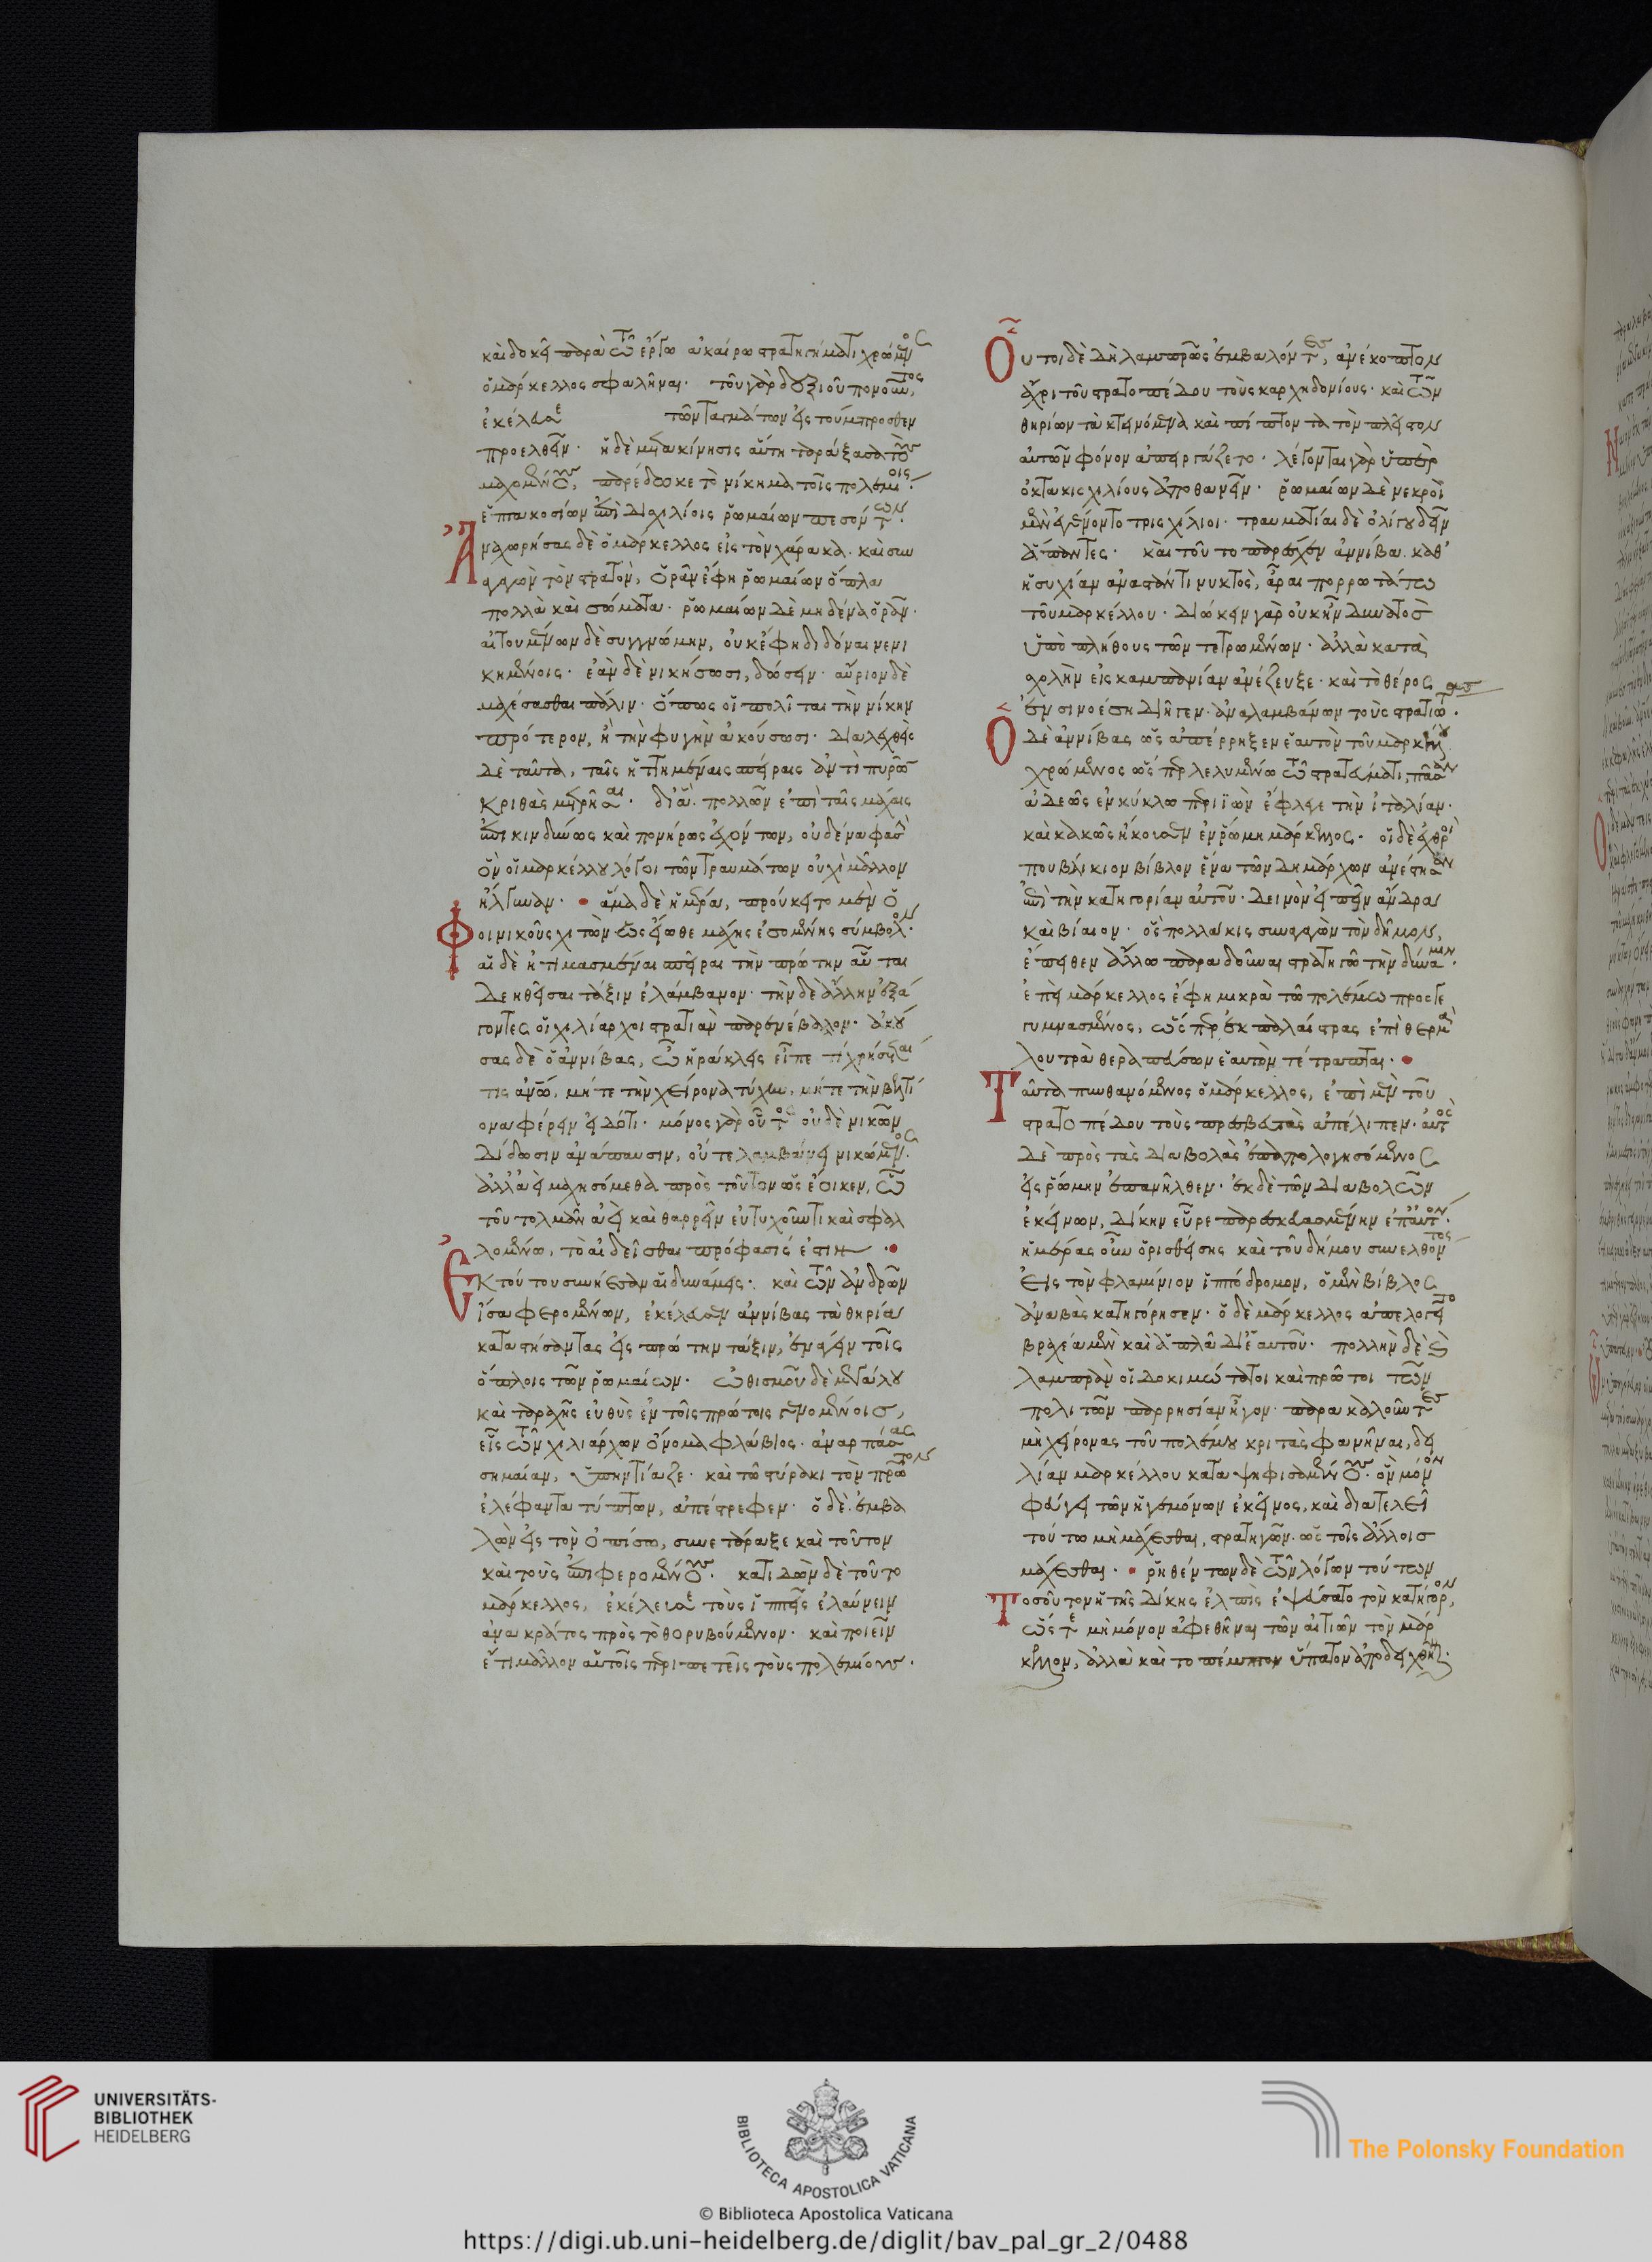 καὶ δοκεῖ παρὰ τῶ ἔργω ἀκαίρω στρατηγήματι χρώμενος
ὁ μάρκελλος σφαλῆναι. τοῦ γὰρ δεξιοῦ πονοῦντος,
ἐκέλευσε τῶν ταγμάτων εἰς τοὔμπροσθεν
προελθεῖν. ἡ δὲ μετακίνησις αὕτη ταράξασα τοὺς
μαχομένους, παρέδωκε τὸ νίκημα τοῖς πολεμίοις.
ἑπτακοσίων ἐπὶ δισχιλίοις ῥωμαίων πεσόντων.
Ἀναχωρήσας δὲ ὁ μάρκελλος εἰς τὸν χάρακα. καὶ συν
αγαγὼν τὸν στρατὸν, ὁρᾶν ἔφη ῥωμαίων ὅπλα
πολλὰ καὶ σώματα. ῥωμαίων δὲ μηδένα ὁρᾶν.
αἰτουμένων δὲ συγγνώμην, οὐκ ἔφη διδόναι νενι
κημένοις. ἐὰν δὲ νικήσωσι, δώσειν. αὔριον δὲ
μαχέσασθαι πάλιν. ὅπως οἱ πολῖται τὴν νίκην
πρότερον, ἢ τὴν φυγὴν ἀκούσωσι. διαλεχθεὶς
δὲ ταῦτα, ταῖς ἡττημέναις σπείραις ἀντὶ πυρῶν
κριθὰς μετρῆσαι. διὰ πολλῶν ἐπὶ ταῖς μάχαις
ἐπικινδύνως καὶ πονήρως ἐχόντων, οὐδένα φασὶ
ὃν οἱ μαρκέλλου λόγοι τῶν τραυμάτων οὐχὶ μᾶλλον
ἤλγυναν. ἅμα δὲ ἡμέρα, προύκειτο μὲν ὁ
Φοινικοῦς χιτὼν ὡς εἴωθε μάχης ἐσομένης σύμβολον.
αἱ δὲ ἠτιμασμέναι σπεῖραι τὴν πρώτην αὗται
δεηθεῖσαι τάξιν ἐλάμβανον. τὴν δὲ ἄλλην ἐξά
γοντες οἱ χιλίαρχοι στρατιὰν παρενέβαλον. ἀκού
σας δὲ ὁ ἀννίβας, ὦ ἡράκλεις εἶπε τί χρήσεται
τις ἀνθρώπω, μήτε τὴν χείρονα τύχην, μήτε τὴν βελτί
ονα φέρειν εἰδότι. μόνος γὰρ οὗτος οὐδὲ νικῶν
δίδωσιν ἀνάπαυσιν, οὔτε λαμβάνει νικώμενος.
ἀλλ' ἀεὶ μαχησόμεθα πρὸς τοῦτον ὡς ἔοικεν, ὧ
τοῦ τολμᾶν ἀεὶ καὶ θαρρεῖν εὐτυχοῦντι καὶ σφαλ
λομένω, τὸ αἰδεῖσθαι πρόφασίς ἐστιν
Ἐκ τούτου συνήεσαν αἱ δυνάμεις. καὶ τῶν ἀνδρῶν
ἴσα φερομένων, ἐκέλευσεν ἀννίβας τὰ θηρία
καταστήσαντας εἰς πρώτην τάξιν, ἐναγεῖν τοῖς
ὅπλοις τῶν ῥωμαίων. ὠθισμοῦ δὲ μεγάλου
καὶ ταραχῆς εὐθὺς ἐν τοῖς πρώτοις γενομένοισ,
εἷς τῶν χιλιάρχων ὄνομα φλάβιος. ἀναρπάσας
σημαίαν, ὑπηντίαζε. καὶ τῶ στύρακι τὸν πρῶτον
ἐλέφαντα τύπτων, ἀπέστρεφεν. ὁ δὲ ἐμβα
λὼν εἰς τὸν ὀπίσω, συνετάραξε καὶ τοῦτον
καὶ τοὺς ἐπιφερομένους. κατιδὼν δὲ τοῦτο
μάρκελλος, ἐκέλευσε τοὺς ἱππεῖς ἐλαύνειν
ἀνακράτος πρὸς τὸ θορυβούμενον. καὶ ποιεῖν
ἔτι μᾶλλον αὑτοῖς περιπετεῖς τοὺς πολεμίους.
Οὗτοι δὲ δὴ λαμπρῶς ἐμβαλόντες, ἀνέκοπτον
ἄχρι τοῦ στρατοπέδου τοὺς καρχηδονίους. καὶ τῶν
θηρίων τὰ κτεινόμενα καὶ πίπτοντα τὸν πλεῖστον
αὐτῶν φόνον ἀπειργάζετο. λέγονται γὰρ ὑπὲρ
ὀκτακισχιλίους ἀποθανεῖν. ῥωμαίων δὲ νεκροὶ
μὲν ἐγένοντο τρισχίλιοι. τραυματίαι δὲ ὀλίγου δεῖν
ἅπαντες. καὶ τοῦτο παρέσχεν ἀννίβαι. καθ'
ἡσυχίαν ἀναστάντι νυκτὸς, ἆραι πορρωτάτω
τοῦ μαρκέλλου. διώκειν γὰρ οὐκ ἦν δυνατὸσ
ὑπὸ πλήθους τῶν τετρωμένων. ἀλλὰ κατὰ
σχολὴν εἰς καμπανίαν ἀνέζευξε. καὶ τὸ θέρος
ἐν σινοέσση διῆγεν ἀναλαμβάνων τοὺς στρατιώτας.
Ὁ δὲ ἀννίβας ὡς ἀπέρρηξεν ἑαυτὸν τοῦ μαρκέλλου
χρώμενος ὥσπερ λελυμένω τῶ στρατεύματι, πᾶσαν
ἀδεῶς ἐν κύκλω περιϊὼν ἔφλεγε τὴν ἰταλίαν.
καὶ κακῶς ἤκουσεν ἐν ῥώμη μάρκελλος. οἱ δὲ ἐχθροὶ
πουβλίκιον βίβλον ἕνα τῶν δημάρχων ἀνέστησαν
ἐπὶ τὴν κατηγορίαν αὐτοῦ. δεινὸν εἰπεῖν ἄνδρα
καὶ βίαιον. ὃς πολλάκις συναγαγὼν τὸν δῆμον,
ἔπειθεν ἄλλω παραδοῦναι στρατηγῶ τὴν δύναμιν.
ἐπεὶ μάρκελλος ἔφη μικρὰ τῶ πολέμω προσεγ
γυμνασμένος, ὥσπερ ἐκ παλαίστρας ἐπὶ θερμὰ
λουτρὰ θεραπεύσων ἑαυτὸν τέτραπται.
Ταῦτα πυνθανόμενος ὁ μάρκελλος, ἐπὶ μὲν τοῦ
στρατοπέδου τοὺς πρεσβευτὰς ἀπέλιπεν. αὐτὸς
δὲ πρὸς τὰς διαβολὰς ἐπαπολογησόμενος
εἰς ῥώμην ἐπανῆλθεν. ἐκ δὲ τῶν διαβολῶν
ἐκείνων, δίκην εὗρε παρεσκευασμένην ἐπ' αὐτόν.
ἡμέρας οὖν ὁρισθείσης καὶ τοῦ δήμου συνελθόντος
εἰς τὸν φλαμίνιον ἱππόδρομον, ὁ μὲν βίβλος
ἀναβὰς κατηγόρησεν. ὁ δὲ μάρκελλος ἀπελογεῖτο
βραχέα μὲν καὶ ἁπλᾶ δι' ἑαυτοῦ. πολλὴν δὲ καὶ
λαμπρὰν οἱ δοκιμώτατοι καὶ πρῶτοι τῶν
πολιτῶν παρρησίαν ἦγον. παρακαλοῦντες
μὴ χείρονας τοῦ πολέμου κριτὰς φανῆναι, δει
λίαν μαρκέλλου καταψηφισαμένους. ὃν μόνον
φεύγει τῶν ἡγεμόνων ἐκεῖνος, καὶ διατελεῖ
τούτω μὴ μάχεσθαι, στρατηγῶν. ὡς τοῖς ἄλλοισ
μάχεσθαι. ῥηθέντων δὲ τῶν λόγων τούτων
Τοσοῦτον ἡ τῆς δίκης ἐλπὶς ἐψεύσατο τὸν κατήγορον,
ὥστε μὴ μόνον ἀφεθῆναι τῶν αἰτιῶν τὸν μάρ
κελλον, ἀλλὰ καὶ το πέμπτον ὕπατον ἀποδειχθῆναι.
UNIVERSITÄTS-
BIBLIOTHEK
HEIDELBERG
BIBLIOTECA APOSTOLICA VATICANA
The Polonsky Foundation
© Biblioteca Apostolica Vaticana
https://digi.ub.uni-heidelberg.de/diglit/bav_pal_gr_2/0488